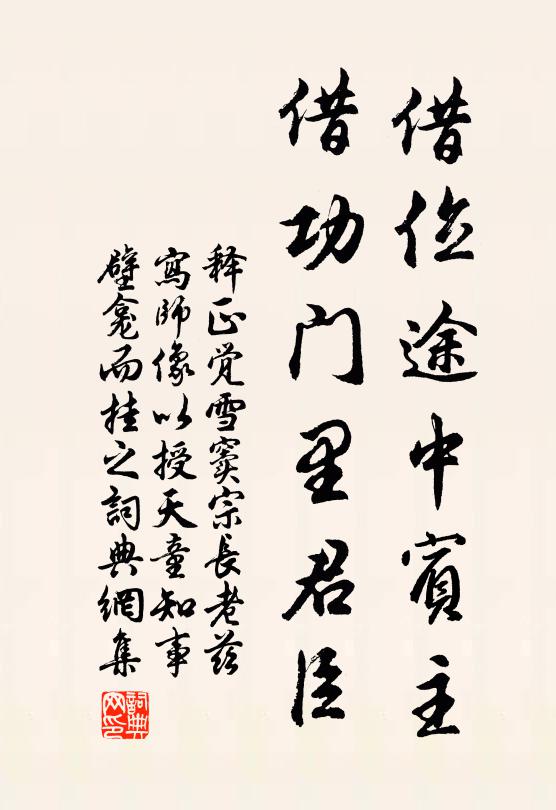 借位途中賓主
借功门里君臣
释正觉雪窦宗長老茲
寫師像以授天童知事
壁龛而挂之詞典網集
詞典网印